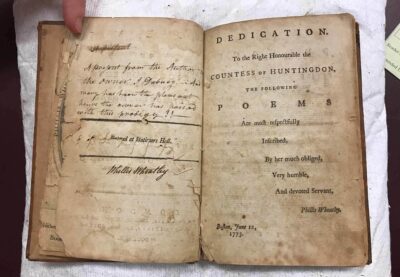 A present from the Author
the owner
many has been the pleasant
hours the owner has passed
with this prodigy !!
Entered at Stationers Hall.
Phillis Wheatley
DEDICATION.
To the Right Honourable the
COUNTESS OF HUNTINGDON,
THE FOLLOWING
POEMS
Are most respectfully
Inscribed,
By her much obliged,
Very humble,
And devoted Servant,
Phillis Wheatley,
Boston, June 12,
1773.